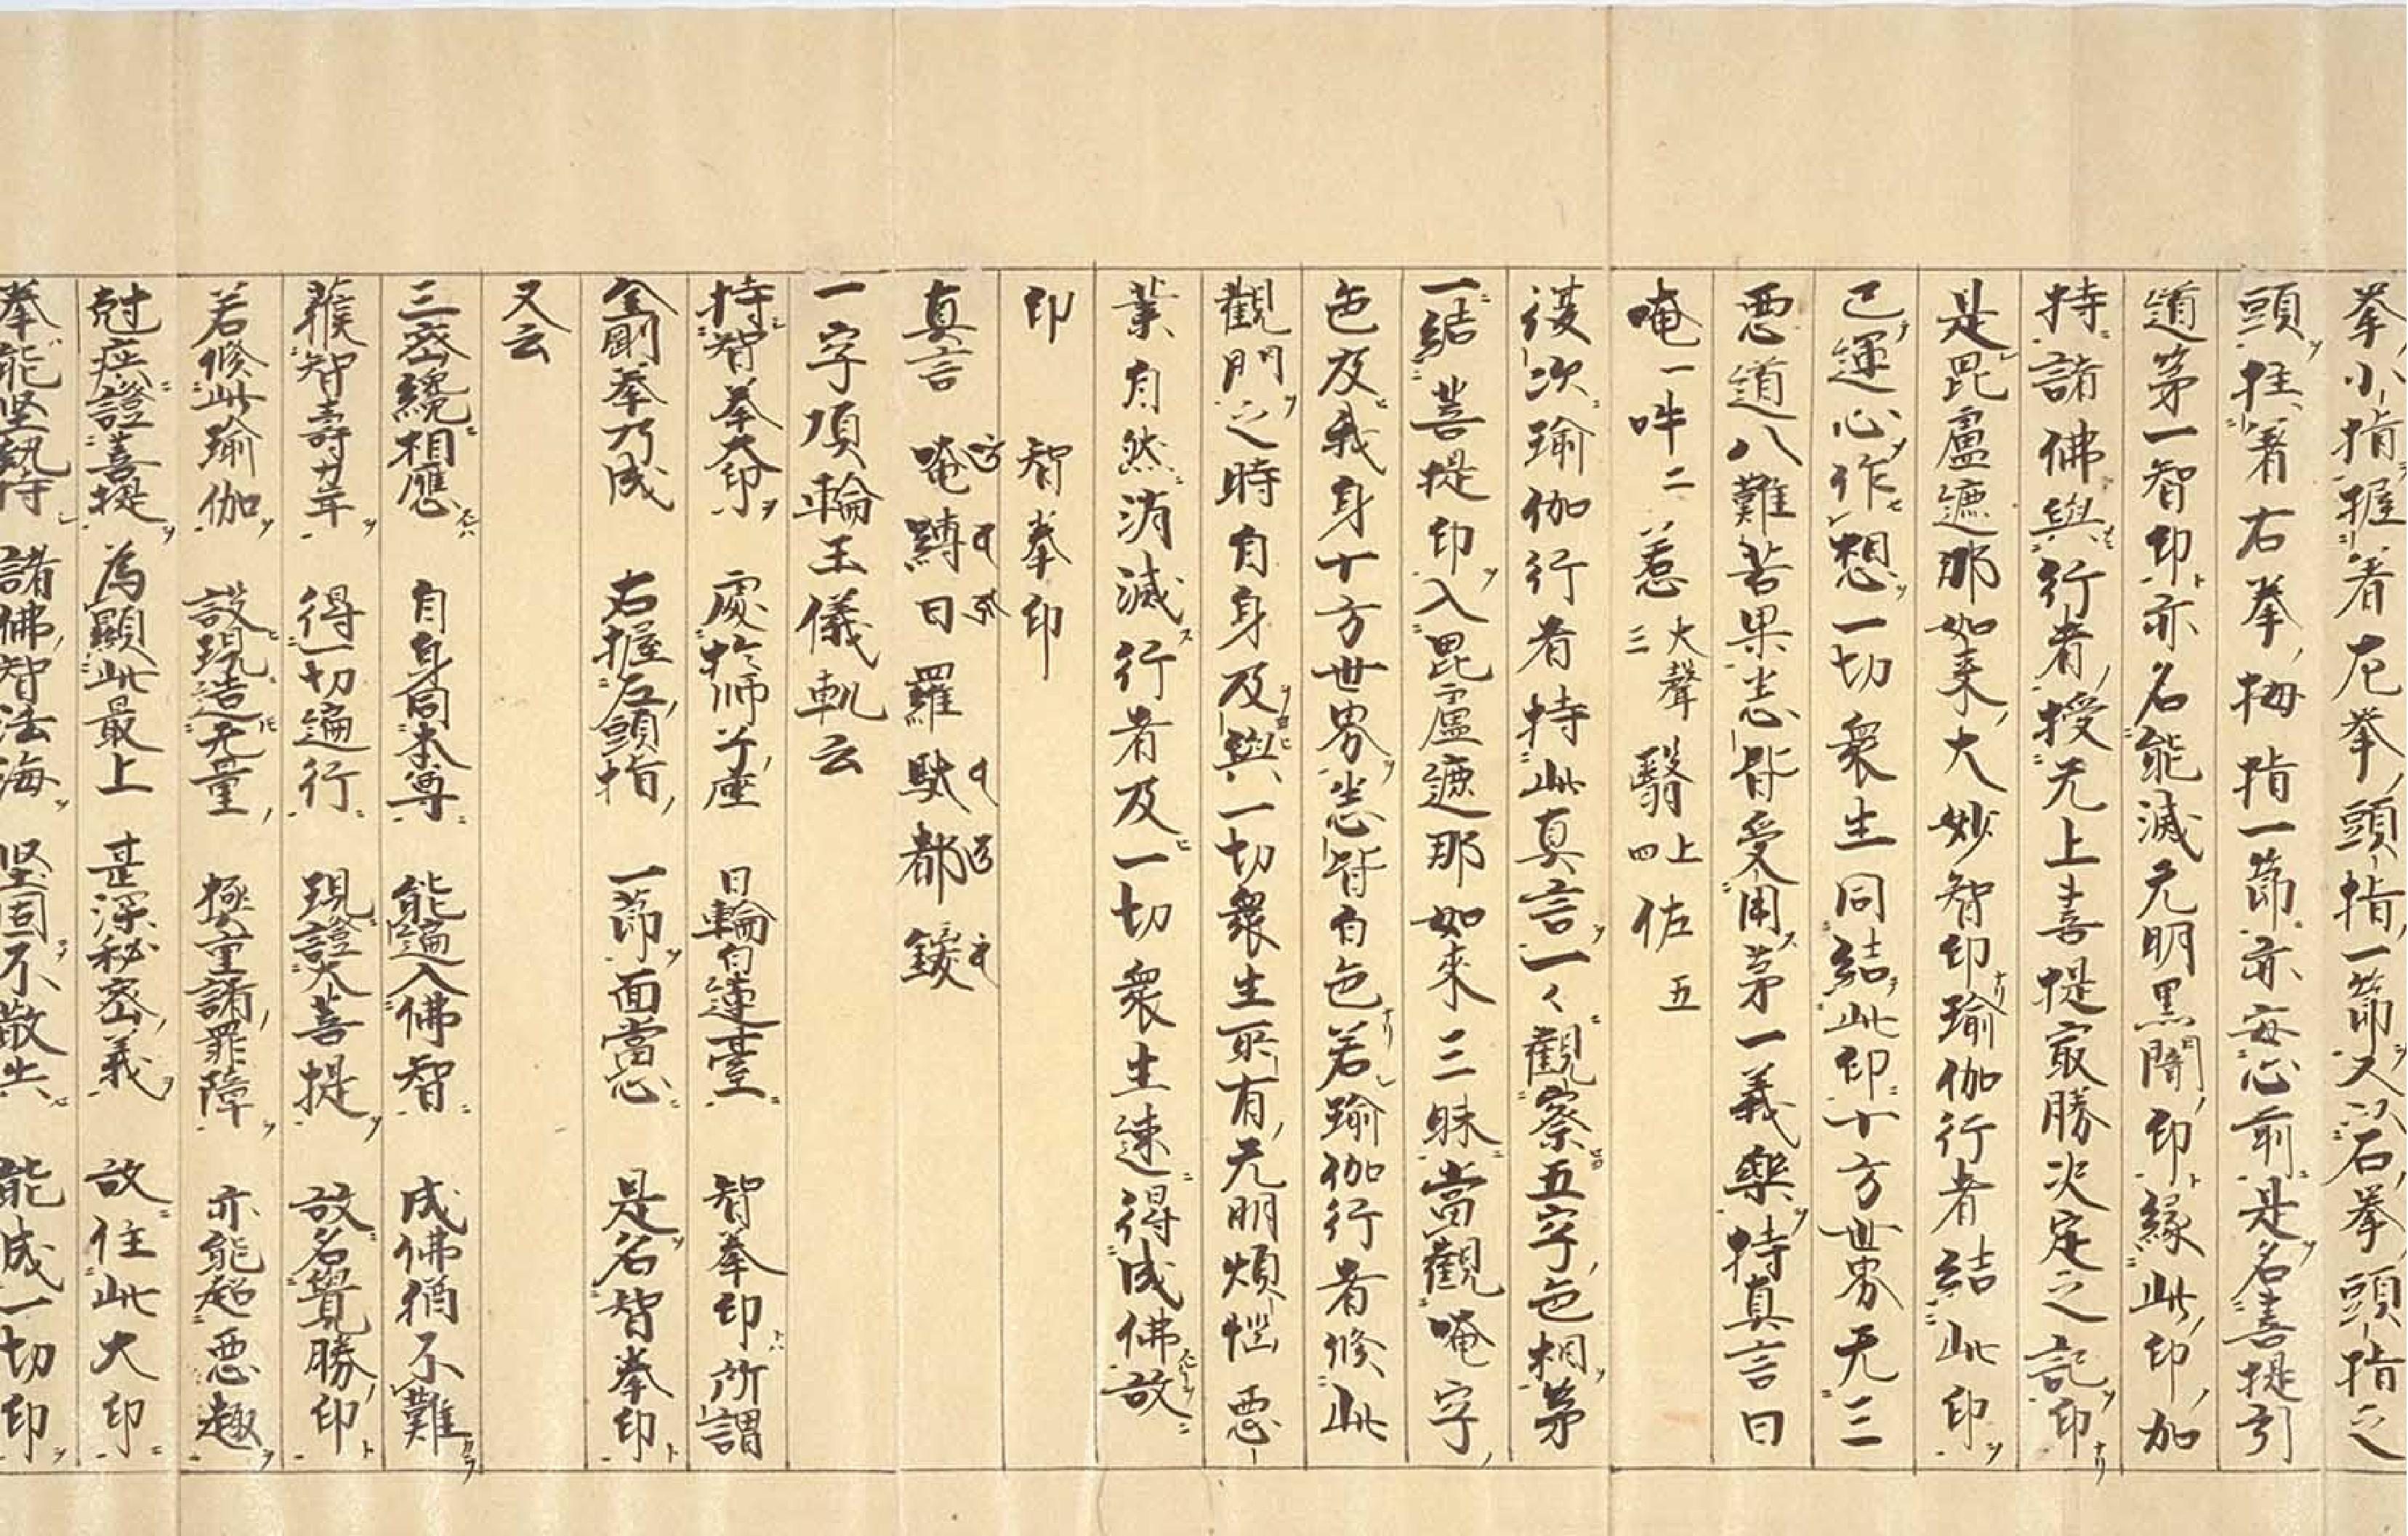 拳小指握着左拳頭指一節又以右拳頭指之
頭拄着右拳拇指一節亦安心前是名菩提引
道第一智印亦名能滅无明黒闇印縁此印加
持諸佛與行者授无上菩提最勝决定之記印
是毘盧遮那如来大妙智印瑜伽行者結此印
已運心作想一切衆生同結此印十方世界无三
悪道八難苦果悉皆受用第一義樂持真言曰
唵一吽二惹三大聲翳四上佐五
復次瑜伽行者持此真言一々觀察五字色相第
一結菩提印入毘盧遮那如来三昧當觀唵字
色及我身十方世界悉皆白色若瑜伽行者修此
觀門之時自身及與一切衆生所有无明煩惱悪
業自然消滅行者及一切衆生速得成佛故
印　智拳印
真言　唵 嚩日羅 馱都 鍐
一字頂輪王儀軌云
持智拳大印　處於師子座　日輪白蓮臺　智拳印所謂
金剛拳乃成　右握左頭指　一節面當心　是名智拳印
又云
三密纔相應　自身同本尊　能遍入佛智　成佛猶不難
獲智壽力年　得一切遍行　現證大菩提　故名覺勝印
若修此瑜伽　設現造无量　極重諸罪障　亦能超悪趣
尅疾證菩提　為顯此最上　甚深秘密義　故住此大印
拳能堅執持　諸佛智法海　堅固不散失　能成一切印